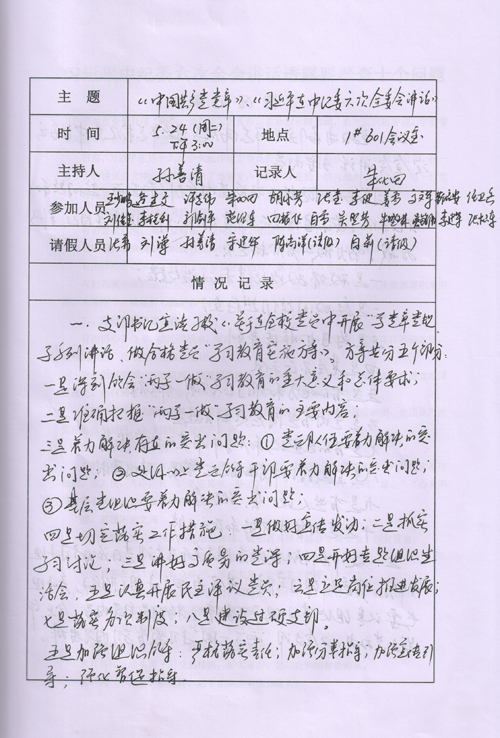 主 题 《中国共产党党章》、《习近平在中纪委六次全委会讲话》
时 间 5.24(周二) 下午3:00 地点 1#601会议室
主持人 孙善清 记录人
参加人员
请假人员 刘萍 孙善清 (请假) (请假)
情 况 记 录
一、支部书记宣读学校《关于在全校党员中开展"学党章党规、
学系列讲话,做合格党员"学习教育实施方案》。方案共分五个部分:
一是深刻领会"两学一做"学习教育的重大意义和总体要求;
二是准确把握"两学一做"学习教育的主要内容;
三是着力解决存在的突出问题:①党员队伍要着力解决的突
出问题;②处级以上党员领导干部要着力解决的突出问题;
③基层党组织要着力解决的突出问题;
四是切实落实工作措施:一是做好宣传发动;二是抓实
学习讨论;三是讲好高质量的党课;四是开好专题组织生
活会,五是认真开展民主评议党员;六是立足岗位推进发展;
七是落实各项制度;八是建设过硬支部。
五是加强组织领导:严格落实责任;加强分类指导;加强宣传引
导;强化督促指导。